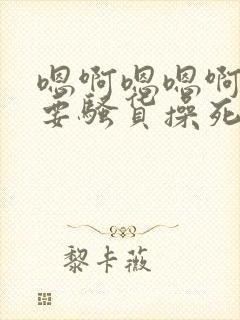 嗯啊嗯嗯啊
要骚货操死
黎卡薇